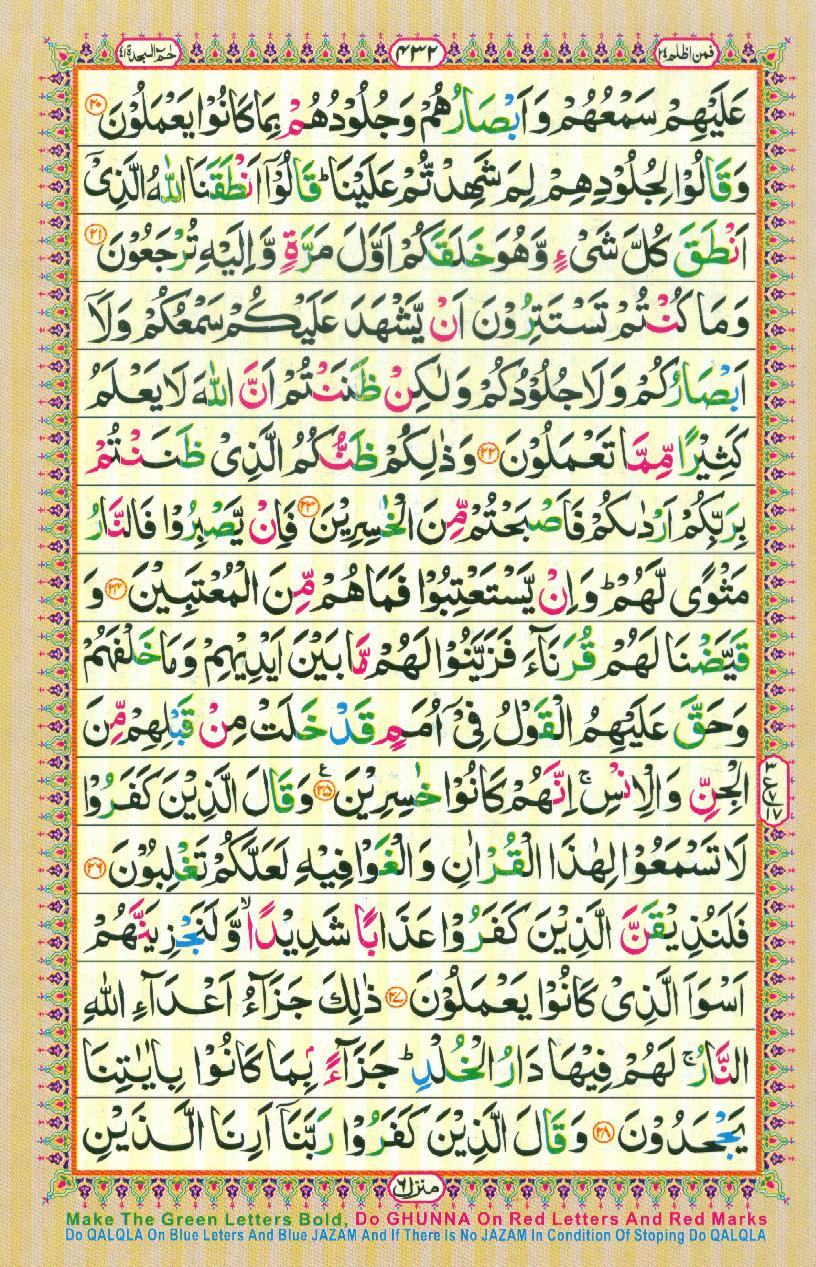 حٰمٓ السجدة ٤١
٤٣٢
فمن اظلم ٢٤
عَلَيْهِمْ سَمْعُهُمْ وَ اَبْصَارُهُمْ وَ جُلُوْدُهُمْ بِمَا كَانُوْا يَعْمَلُوْنَ ﴿۲۰﴾
وَ قَالُوْا لِجُلُوْدِهِمْ لِمَ شَهِدْتُّمْ عَلَيْنَا ؕ قَالُوْۤا اَنْطَقَنَا اللّٰهُ الَّذِیْۤ
اَنْطَقَ كُلَّ شَیْءٍ وَّ هُوَ خَلَقَكُمْ اَوَّلَ مَرَّةٍ وَّ اِلَيْهِ تُرْجَعُوْنَ ﴿۲۱﴾
وَ مَا كُنْتُمْ تَسْتَتِرُوْنَ اَنْ يَّشْهَدَ عَلَيْكُمْ سَمْعُكُمْ وَ لَاۤ
اَبْصَارُكُمْ وَ لَا جُلُوْدُكُمْ وَ لٰكِنْ ظَنَنْتُمْ اَنَّ اللّٰهَ لَا يَعْلَمُ
كَثِيْرًا مِّمَّا تَعْمَلُوْنَ ﴿۲۲﴾ وَ ذٰلِكُمْ ظَنُّكُمُ الَّذِیْ ظَنَنْتُمْ
بِرَبِّكُمْ اَرْدٰىكُمْ فَاَصْبَحْتُمْ مِّنَ الْخٰسِرِيْنَ ﴿۲۳﴾ فَاِنْ يَّصْبِرُوْا فَالنَّارُ
مَثْوًى لَّهُمْ ؕ وَ اِنْ يَّسْتَعْتِبُوْا فَمَا هُمْ مِّنَ الْمُعْتَبِيْنَ ﴿۲۴﴾ وَ
قَيَّضْنَا لَهُمْ قُرَنَآءَ فَزَيَّنُوْا لَهُمْ مَّا بَيْنَ اَيْدِيْهِمْ وَ مَا خَلْفَهُمْ
وَ حَقَّ عَلَيْهِمُ الْقَوْلُ فِیْۤ اُمَمٍ قَدْ خَلَتْ مِنْ قَبْلِهِمْ مِّنَ
الْجِنِّ وَ الْاِنْسِ ۚ اِنَّهُمْ كَانُوْا خٰسِرِيْنَ ﴿۲۵﴾ ع وَ قَالَ الَّذِيْنَ كَفَرُوْا
لَا تَسْمَعُوْا لِهٰذَا الْقُرْاٰنِ وَ الْغَوْا فِيْهِ لَعَلَّكُمْ تَغْلِبُوْنَ ﴿۲۶﴾
فَلَنُذِيْقَنَّ الَّذِيْنَ كَفَرُوْا عَذَابًا شَدِيْدًا ۙ وَّ لَنَجْزِيَنَّهُمْ
اَسْوَاَ الَّذِیْ كَانُوْا يَعْمَلُوْنَ ﴿۲۷﴾ ذٰلِكَ جَزَآءُ اَعْدَآءِ اللّٰهِ
النَّارُ ۚ لَهُمْ فِيْهَا دَارُ الْخُلْدِ ؕ جَزَآءًۢ بِمَا كَانُوْا بِاٰيٰتِنَا
يَجْحَدُوْنَ ﴿۲۸﴾ وَ قَالَ الَّذِيْنَ كَفَرُوْا رَبَّنَاۤ اَرِنَا الَّذَيْنِ
منزل ٦
Make The Green Letters Bold, Do GHUNNA On Red Letters And Red Marks
Do QALQLA On Blue Leters And Blue JAZAM And If There Is No JAZAM In Condition Of Stoping Do QALQLA